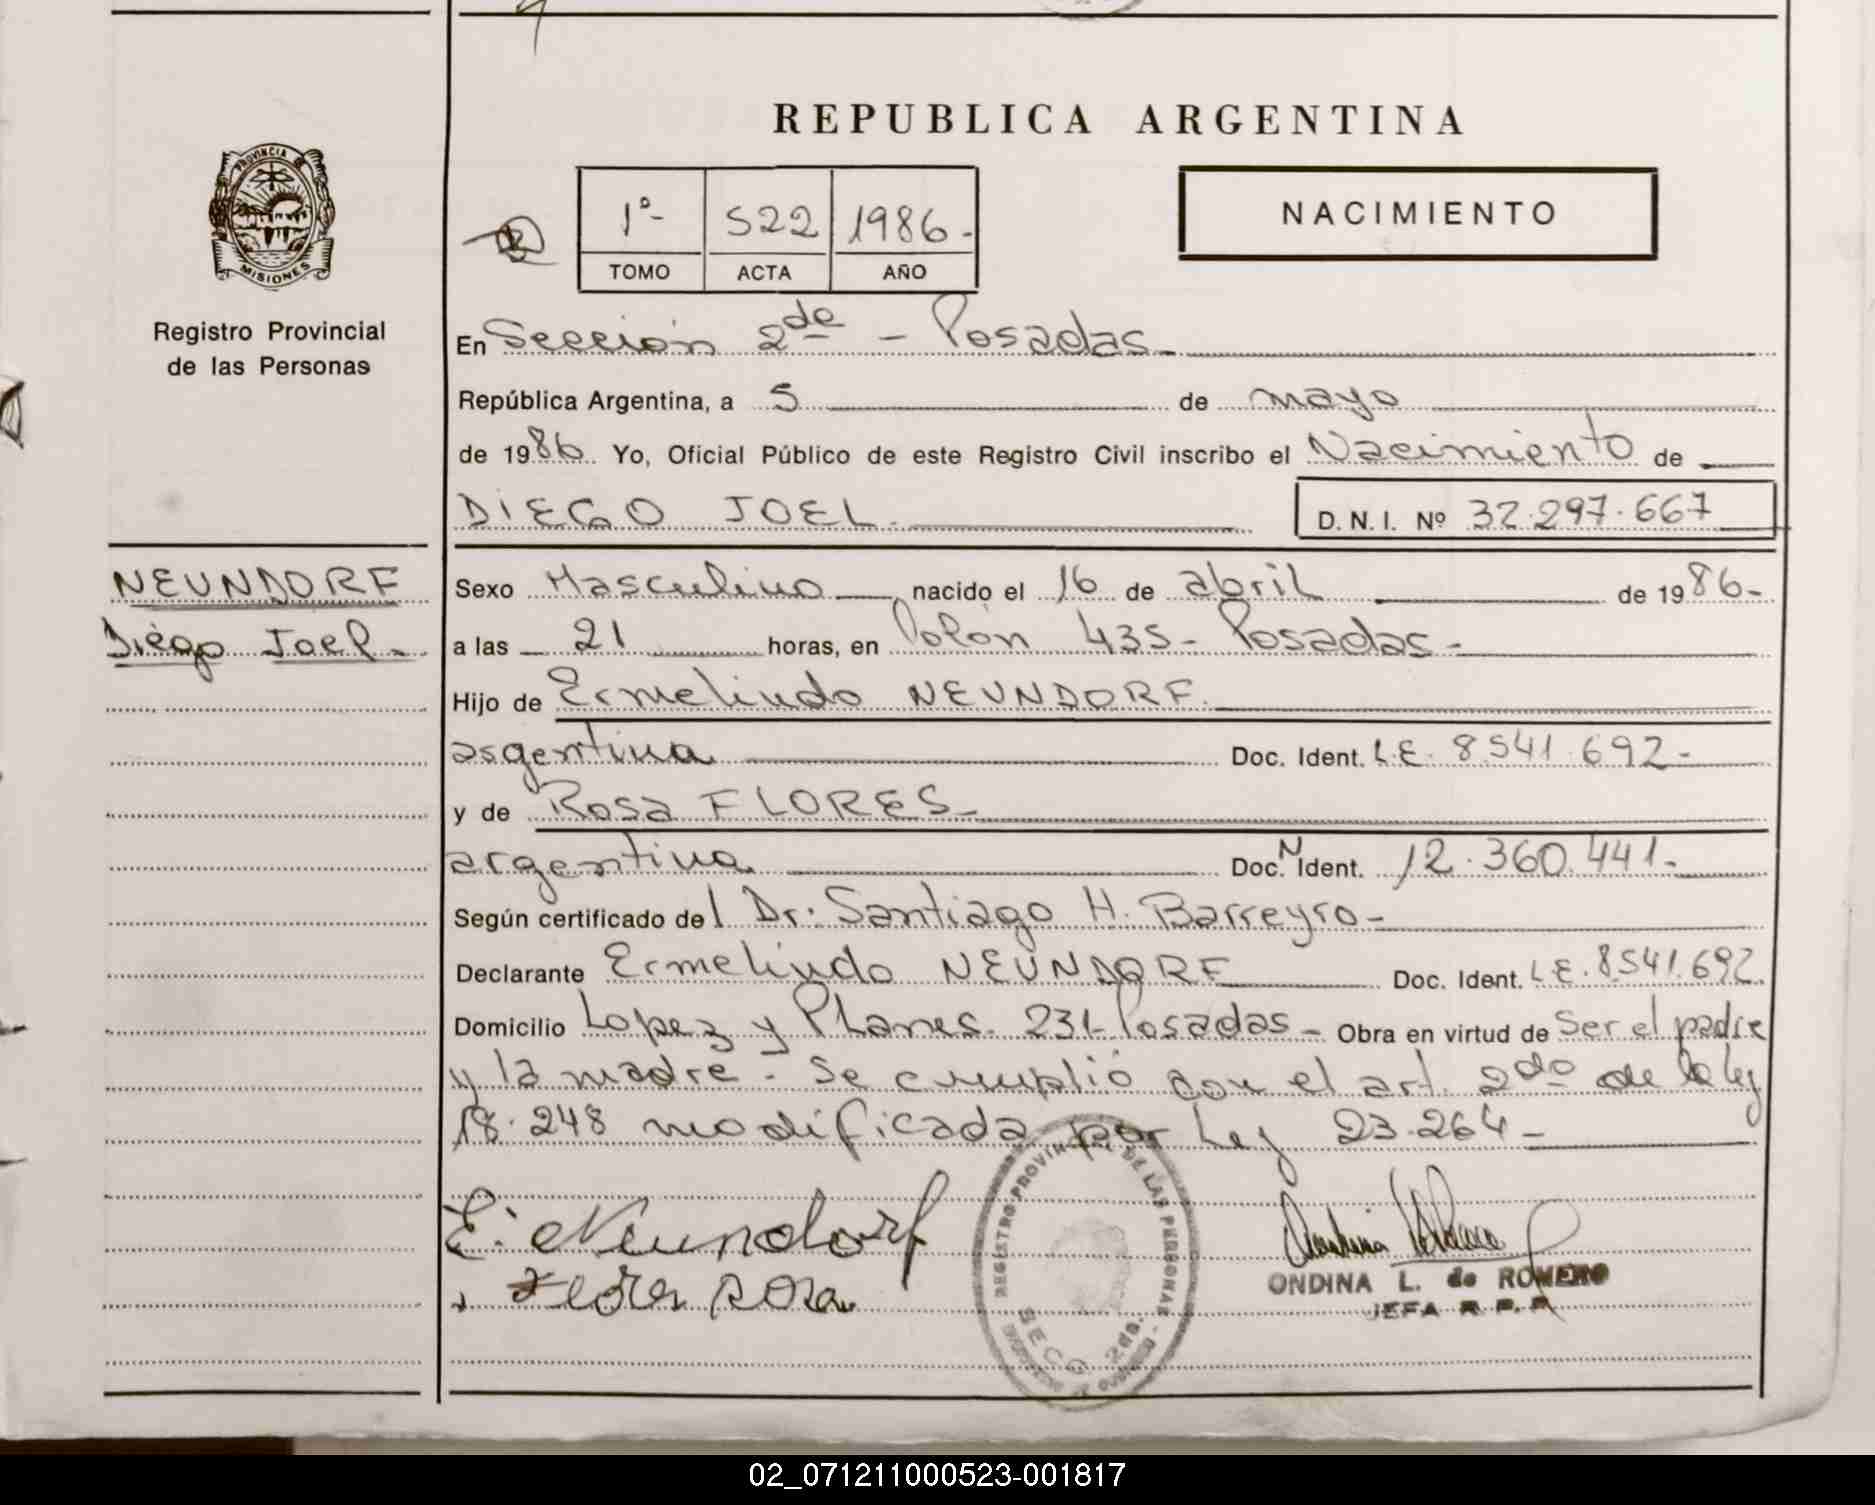 REPUBLICA ARGENTINA
PROVINCIA DE
MISIONES
Registro Provincial
de las Personas
1º- 522 1986-
TOMO ACTA AÑO
NACIMIENTO
En Sección 2da - Posadas-
República Argentina, a 5 de mayo
de 1986 Yo, Oficial Público de este Registro Civil inscribo el Nacimiento de
DIEGO JOEL. D. N. I. Nº 32.297.667
NEUNDORF
Diego Joel-
Sexo Masculino nacido el 16 de abril de 1986-
a las 21 horas, en Colón 435- Posadas-
Hijo de Ermelindo NEUNDORF.
argentina Doc. Ident. L.E. 8.541.692-
y de Rosa FLORES-
argentina Doc. N Ident. 12.360.441-
Según certificado del Dr: Santiago H. Barreyro-
Declarante Ermelindo NEUNDORF Doc. Ident. L.E. 8.541.692.
Domicilio Lopez y Planes. 231- Posadas- Obra en virtud de Ser el padre
y la madre. Se cumplió con el art. 2do de la ley
18.248 modificada por Ley 23.264-
E. Neundorf
Flores Rosa
REGISTRO PROVINCIAL DE LAS PERSONAS
SECC. 2da.
ONDINA L. de ROMERO
JEFA R. P. P.
02_071211000523-001817